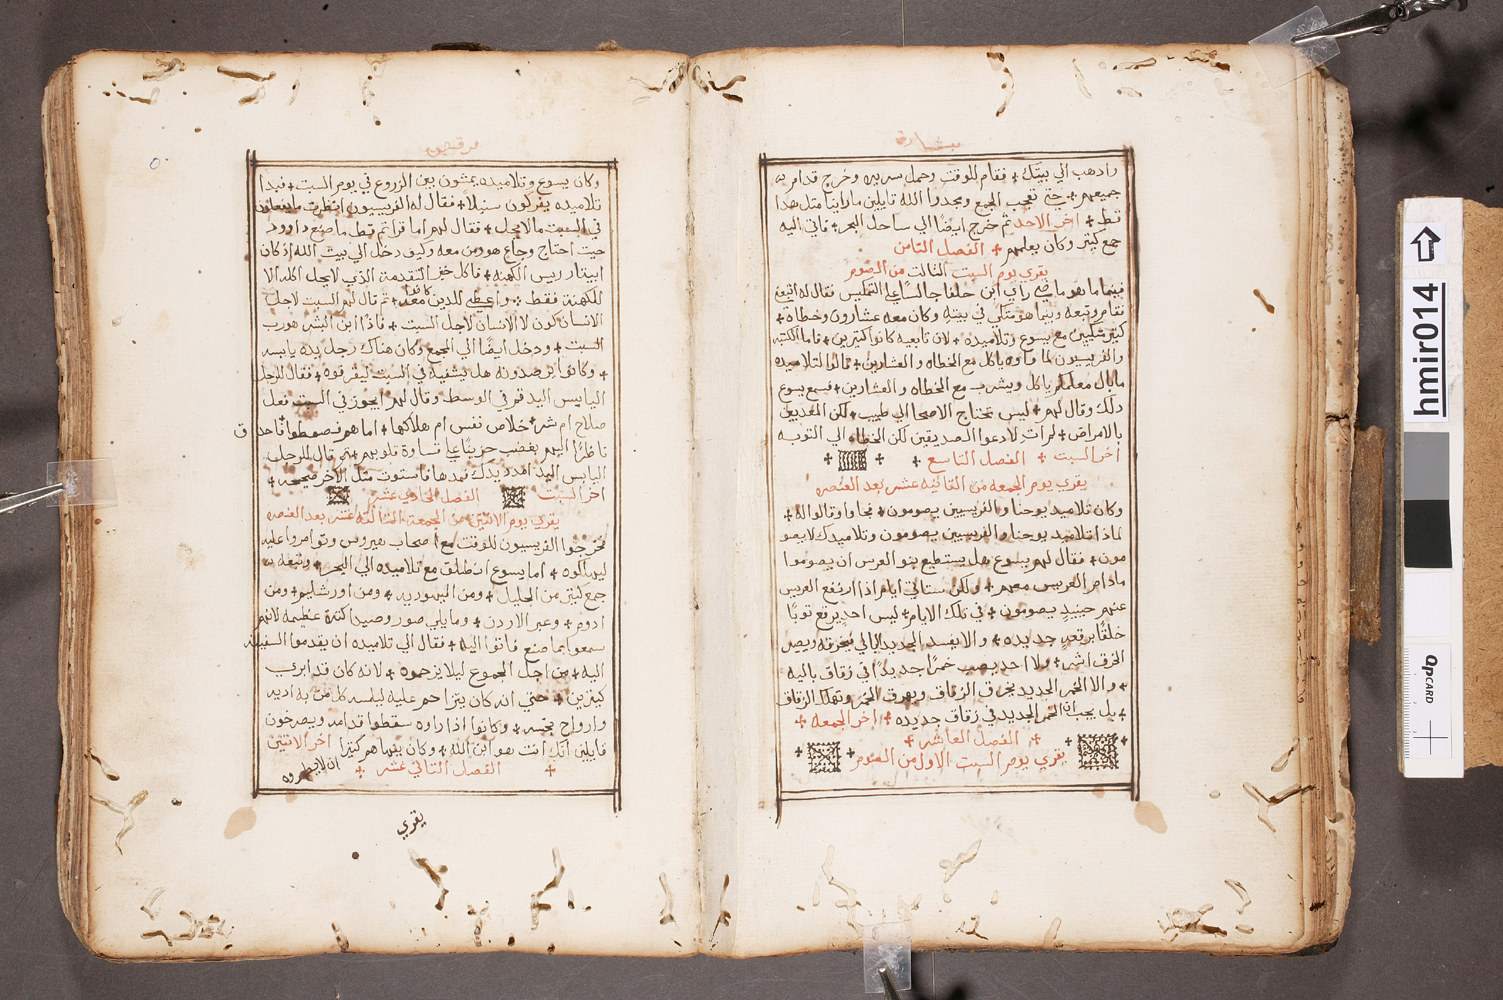 بشارة
واذهب الي بيتك + فقام للوقت وحمل سريره وخرج قدام
جميعهم + حتي تعجب الجمع ومجدوا الله قايلين ما راينا مثل هذا
قط + اخر الاحد ثم خرج ايضا الي ساحل البحر + فاتي اليه
جمع كثير وكان يعلمهم + الفصل الثامن
يقري يوم السبت الثالت من الصوم
فيما هو ماضي راي ابن حلفا جالسا علي التمكيس فقال له اتبعني
فقام وتبعه وبينما هو متكي في بيته وكان معه عشارون وخطاه +
كثير متكيين مع يسوع وتلاميذه + لان تابعيه كانوا كثيرين + فاما الكتبه
والفريسيون لما راوه ياكل مع الخطاه والعشارين + قالوا لتلاميذه
ما بال معلمكم ياكل ويشرب مع الخطاه والعشارين + فسمع يسوع
ذلك وقال لهم + ليس تحتاج الاصحا الي طبيب + لكن المعذبين
بالامراض + لم ات لادعوا الصديقين لكن الخطاه الي التوبه
اخر السبت + الفصل التاسع + + +
يقري يوم الجمعه من الثانيه عشر بعد العنصره
وكان تلاميد يوحنا والفريسيين يصومون + فجاوا وقالوا له +
لماذا تلاميد يوحنا والفريسيين يصومون وتلاميدك لا يصو
مون + فقال لهم يسوع هل يستطيع بنو العرس ان يصوموا
مادام العريس معهم + ولكن ستاتي ايام اذا ارتفع العريس
عنهم حينيذ يصومون + في تلك الايام + ليس احد يرقع ثوبا
خلقا برقعه جديده + والا يفسد الجديد البالي بخرقه ويصر
الخرق اشر + ولا احد يصب خمرا جديدا في زقاق باليه
+ والا الخمر الجديد يخرق الزقاق ويهرق الخمر وتهلك الزقاق
+ بل يجب ان الخمر الجديد في زقاق جديده + اخر الجمعه +
+ الفصل العاشر +
يقري يوم السبت الاول من الصوم
مرقص
وكان يسوع وتلاميذه يمشون بين الزروع في يوم السبت + فبدا
تلاميذه يفركون سنبلا + فقال له الفريسيون انظر ما يفعلون
في السبت ما لا يحل + فقال لهم اما قراتم قط ما صنع داوود
حيت احتاج وجاع هو ومن معه وكيف دخل الي بيت الله اذ كان
ابيتار ريس الكهنه + فاكل خبز التقدمة الذي لا يحل اكله الا
للكهنة فقط + واعطي للدين كانوا معه + ثم قال لهم السبت لاجل
الانسان كون لا الانسان لاجل السبت + فاذا ابن البشر هو رب
السبت + ودخل ايضا الي المجمع وكان هناك رجل يده يابسه
+ وكانوا يرصدونه هل يشفيه في السبت ليقرفوه + فقال للرجل
اليابيس اليد قم في الوسط وقال لهم ايجوز في السبت فعل
صلاح ام شر + خلاص نفس ام هلاكها + اما هم فصمتطوا فاحدق
ناظرا اليهم بغضب حزينا علي قساوة قلوبهم + ثم قال للرجل
اليابس اليد امدد يدك فمدها فاستوت مثل الاخر صحيحه +
اخر السبت الفصل الحادي عشر
يقري يوم الاثنين من الجمعة الثالثه عشر بعد العنصره
فخرجوا الفريسيون للوقت مع اصحاب هيرودس وتوامروا عليه
ليهلكوه + اما يسوع انطلق مع تلاميذه الي البحر + وتبعه
جمع كثير من الجليل + ومن اليهوديه + ومن اورشليم + ومن
ادوم + وعبر الاردن + وما يلي صور وصيدا كثرة عظيمه لانهم
سمعوا بما صنع فاتوا اليه + فقال الي تلاميذه ان يقدموا السفينه
اليه + من اجل الجموع ليلا يزحموه + لانه كان قد ابري
كيرين + حتي انه كان يتزاحم عليه ليلمسه كل من به ادية
وارواح نجسه + وكانوا اذا راوه سقطوا قدامه ويصرخون
قايلين انك انت هو ابن الله + وكان ينهاهم كثيرا اخر الاثنين
+ الفصل الثاني عشر + ان لا يظهروه
يقري
hmir014
QP CARD